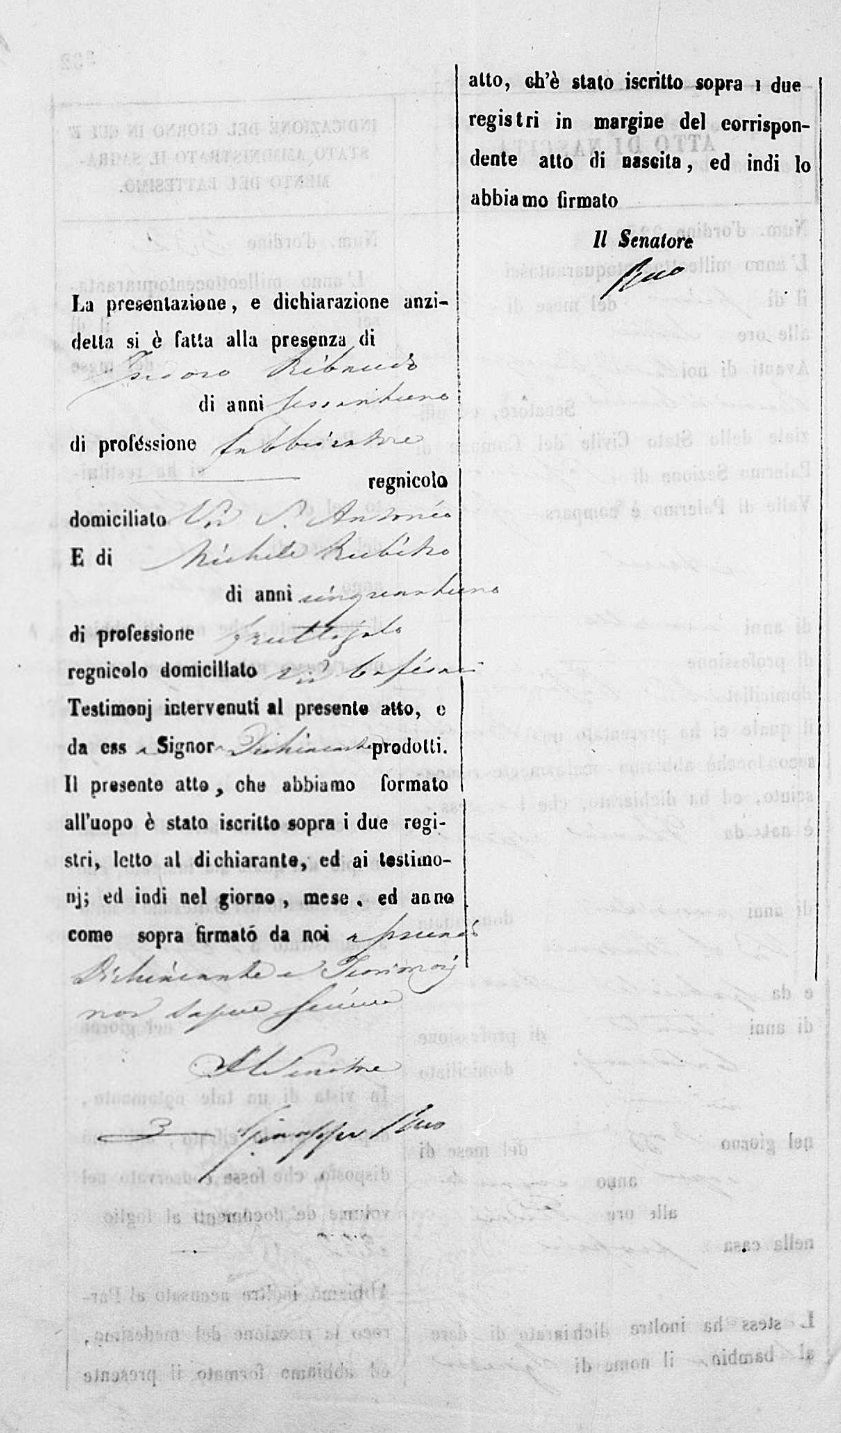 La presentazione, e dichiarazione anzi-
detta si è fatta alla presenza di
Isidoro Ribaudo
di anni sessantuno
di proféssione fabbricatore
regnicolo
domiciliato Via S. Antonio
E di Michele
di anni cinquantuno
di professione fruttajolo
regnicolo domicillato via
Testimonj intervenuti al presente atto, e
da ess i Signor Dichiarante prodotti.
Il presente atto, che abbiamo formato
all'uopo è stato iscritto sopra i due regi-
stri, letto al dichiarante, ed ai testimo-
nj; ed indi nel giorno, mese, ed anno
come sopra firmató da noi
Dichiarante e Testimonj
non sapere scrivere
Il Senatore
Giuseppe
atto, ch'è stato iscritto sopra i due
registri in margine del corrispon-
dente atto di nascita, ed indi lo
abbiamo firmato
Il Senatore